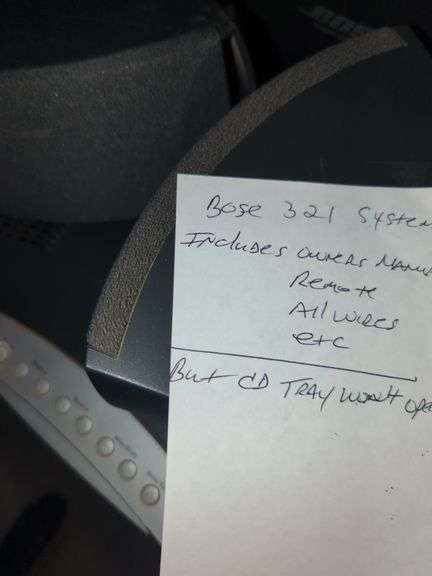 BOSE
Bose 321 System
Includes owners Manu
Remote
All wires
etc
But CD Tray won't ope